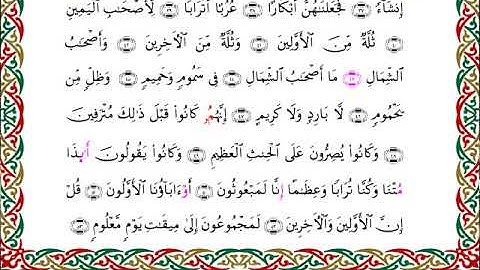 إِنشَآءً ۝٣٥ فَجَعَلْنَٰهُنَّ أَبْكَارًا ۝٣٦ عُرُبًا أَتْرَابًا ۝٣٧ لِّأَصْحَٰبِ ٱلْيَمِينِ
۝٣٨ ثُلَّةٌ مِّنَ ٱلْأَوَّلِينَ ۝٣٩ وَثُلَّةٌ مِّنَ ٱلْأَخِرِينَ ۝٤٠ وَأَصْحَٰبُ
ٱلشِّمَالِ ۝٤١ مَا أَصْحَٰبُ ٱلشِّمَالِ ۝ فِى سَمُومٍ وَحَمِيمٍ ۝٤٢ وَظِلٍّ مِّن
يَحْمُومٍ ۝٤٣ لَّا بَارِدٍ وَلَا كَرِيمٍ ۝٤٤ إِنَّهُمُۥ كَانُواْ قَبْلَ ذَٰلِكَ مُتْرَفِينَ
۝٤٥ وَكَانُواْ يُصِرُّونَ عَلَى ٱلْحِنثِ ٱلْعَظِيمِ ۝٤٦ وَكَانُواْ يَقُولُونَ أَىِٕذَا
مُتْنَا وَكُنَّا تُرَابًا وَعِظَٰمًا إِنَّا لَمَبْعُوثُونَ ۝ أَوْ ءَابَآؤُنَا ٱلْأَوَّلُونَ ۝ قُلْ
إِنَّ ٱلْأَوَّلِينَ وَٱلْأَخِرِينَ ۝ لَمَجْمُوعُونَ إِلَىٰ مِيقَٰتِ يَوْمٍ مَّعْلُومٍ ۝